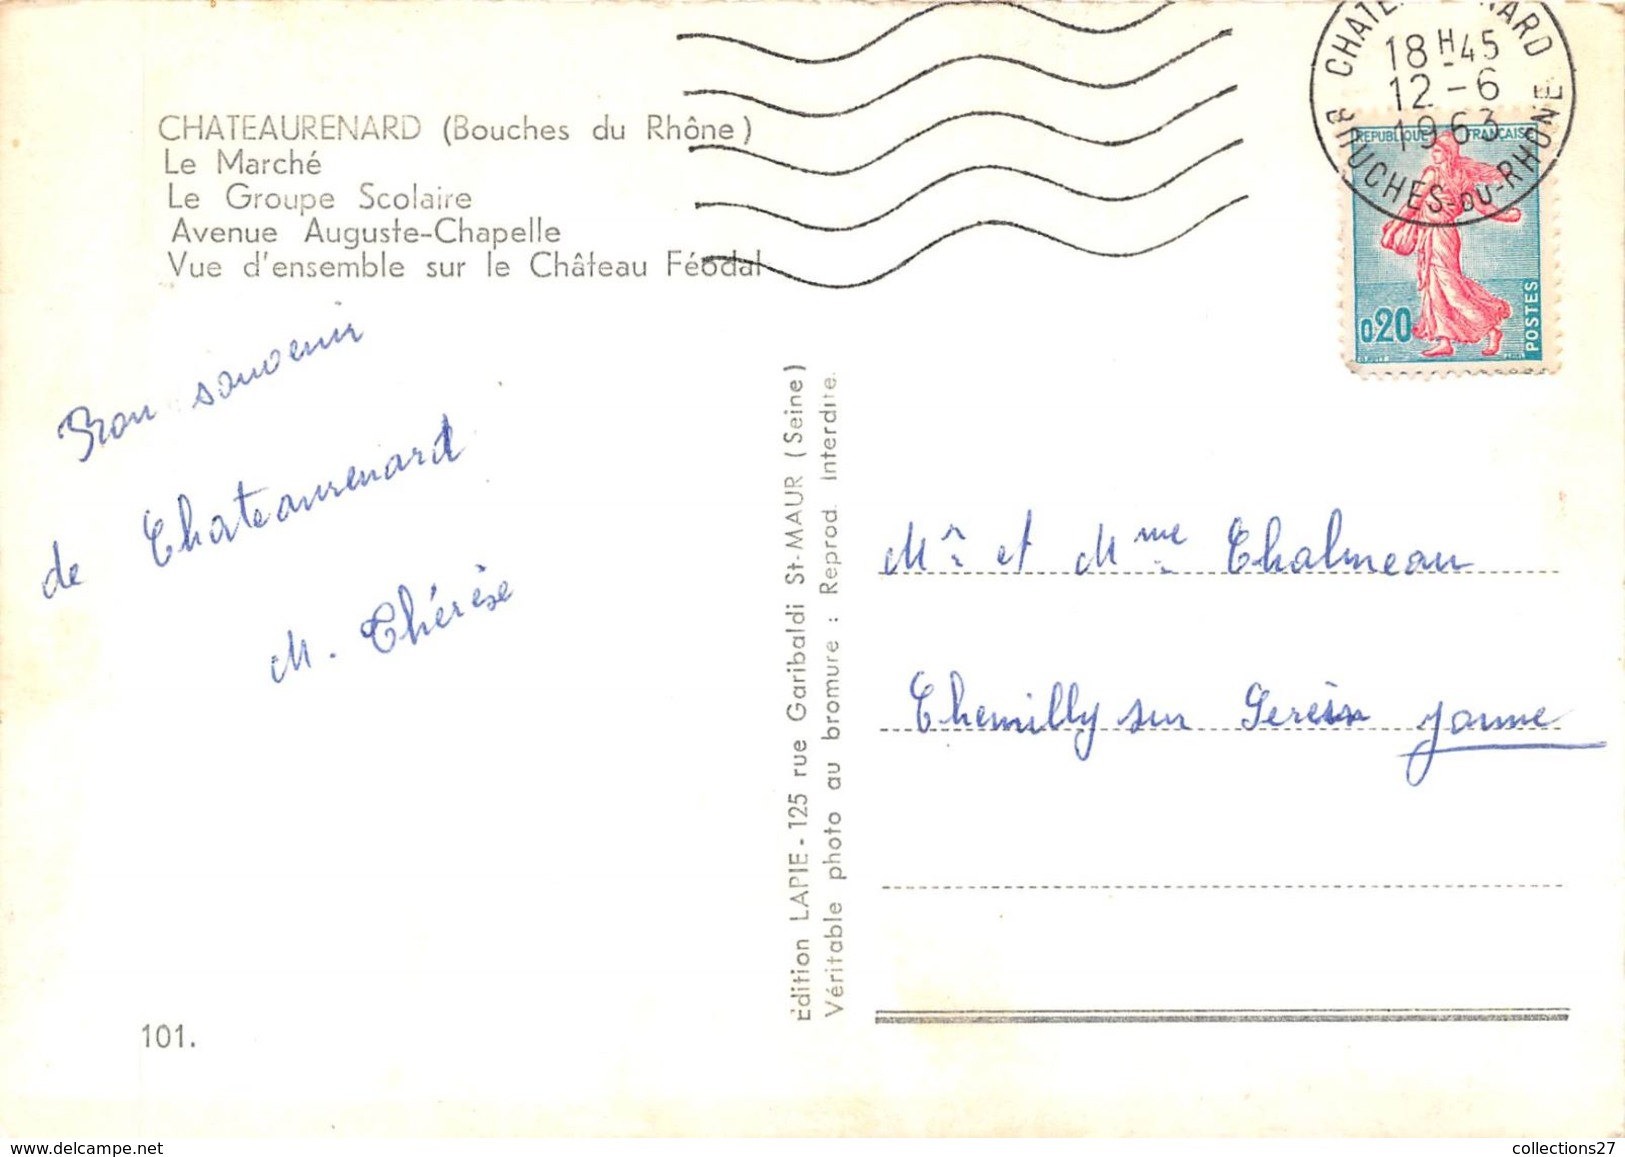 CHATEAURENARD (Bouches du Rhône)
Le Marché
Le Groupe Scolaire
Avenue Auguste-Chapelle
Vue d'ensemble sur le Château Féodal
Bon souvenir
de Chateaurenard
M. Thérèse
101.
Edition LAPIE - 125 rue Garibaldi St-MAUR (Seine)
Véritable photo au bromure : Reprod. Interdite.
18H45
12-6
1963
BOUCHES-DU-RHONE
REPUBLIQUE FRANÇAISE
0.20
POSTES
Mr et Mme Chalmeau
Chemilly sur Serein Yonne
www.delcampe.net
collections27